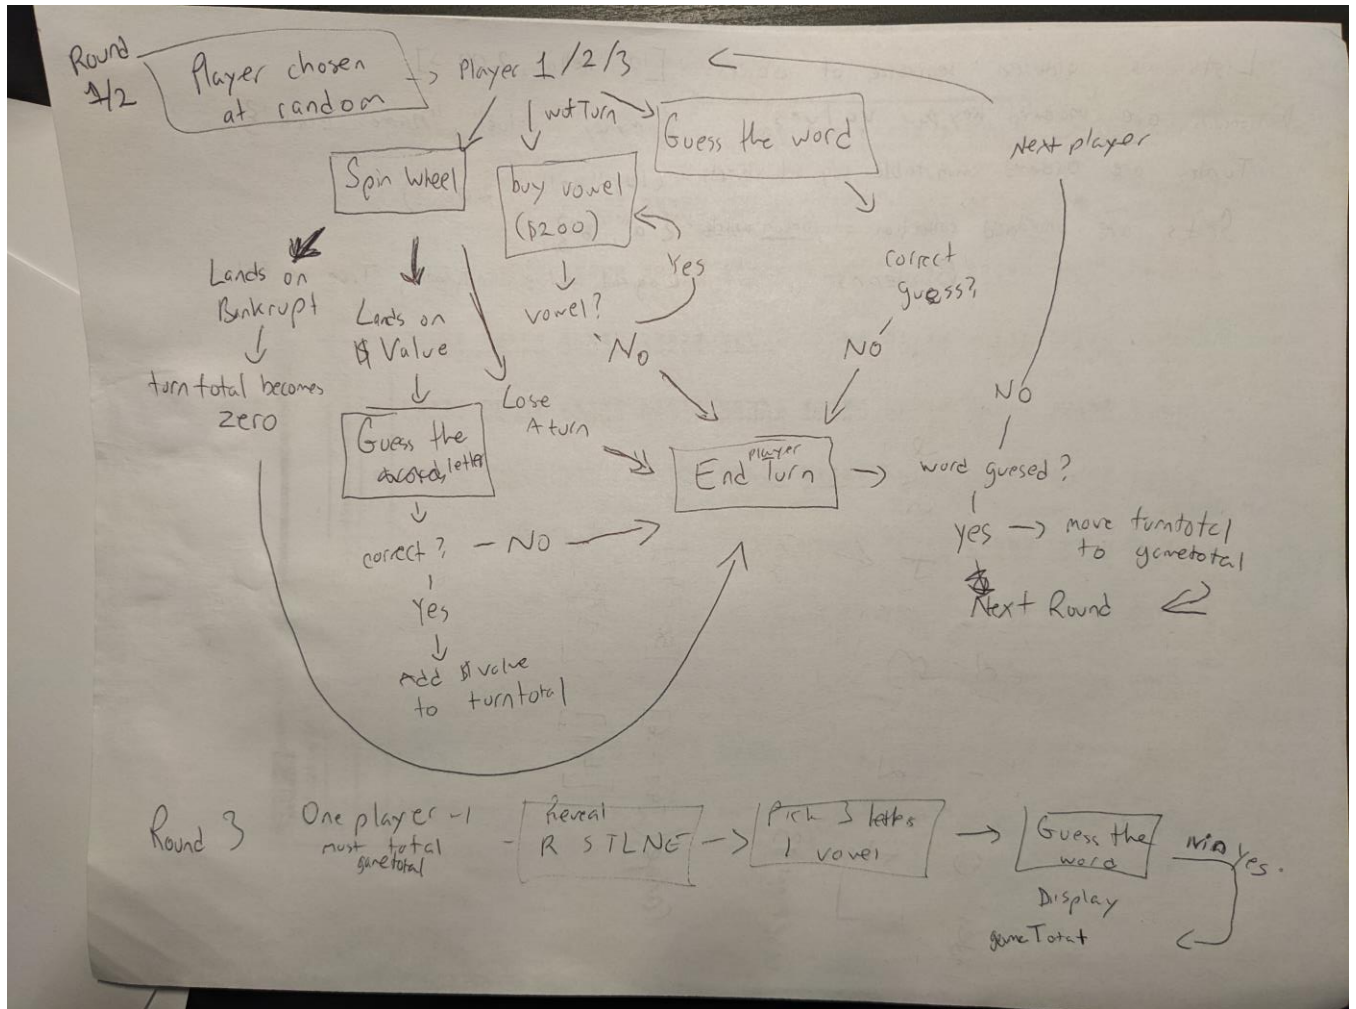 Round
1/2
Player chosen
at random
Player 1/2/3
Next player
Spin wheel
buy vowel
($200)
Guess the word
Lands on
Bankrupt
turn total becomes
zero
Lands on
$ Value
Guess the
letter
correct?
NO
Yes
Add $ value
to turntotal
Lose
A turn
vowel?
Yes
No
correct
guess?
NO
player
End Turn
word guesed?
NO
yes
move turntotal
to gametotal
Next Round
Round 3
One player -1
must total
gametotal
Reveal
R STLNE
Pick 3 letters
1 vowel
Guess the
word
win yes.
Display
gameTotal